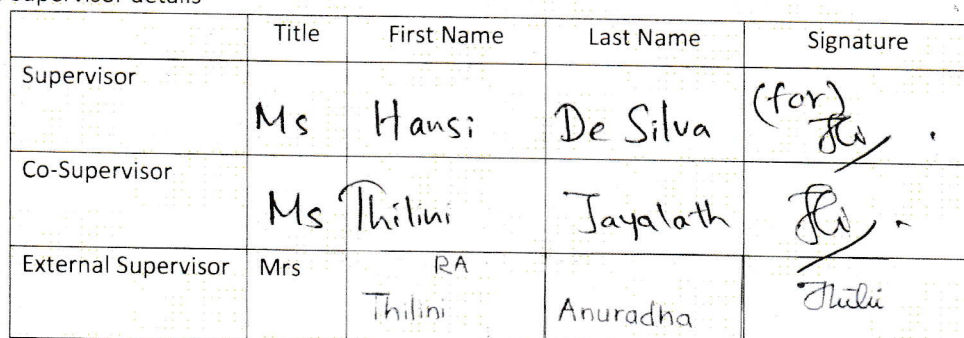 Supervisor details
Title First Name Last Name Signature
Supervisor
Ms Hansi De Silva (for)
Co-Supervisor
Ms Thilini Jayalath
External Supervisor Mrs RA
Thilini Anuradha